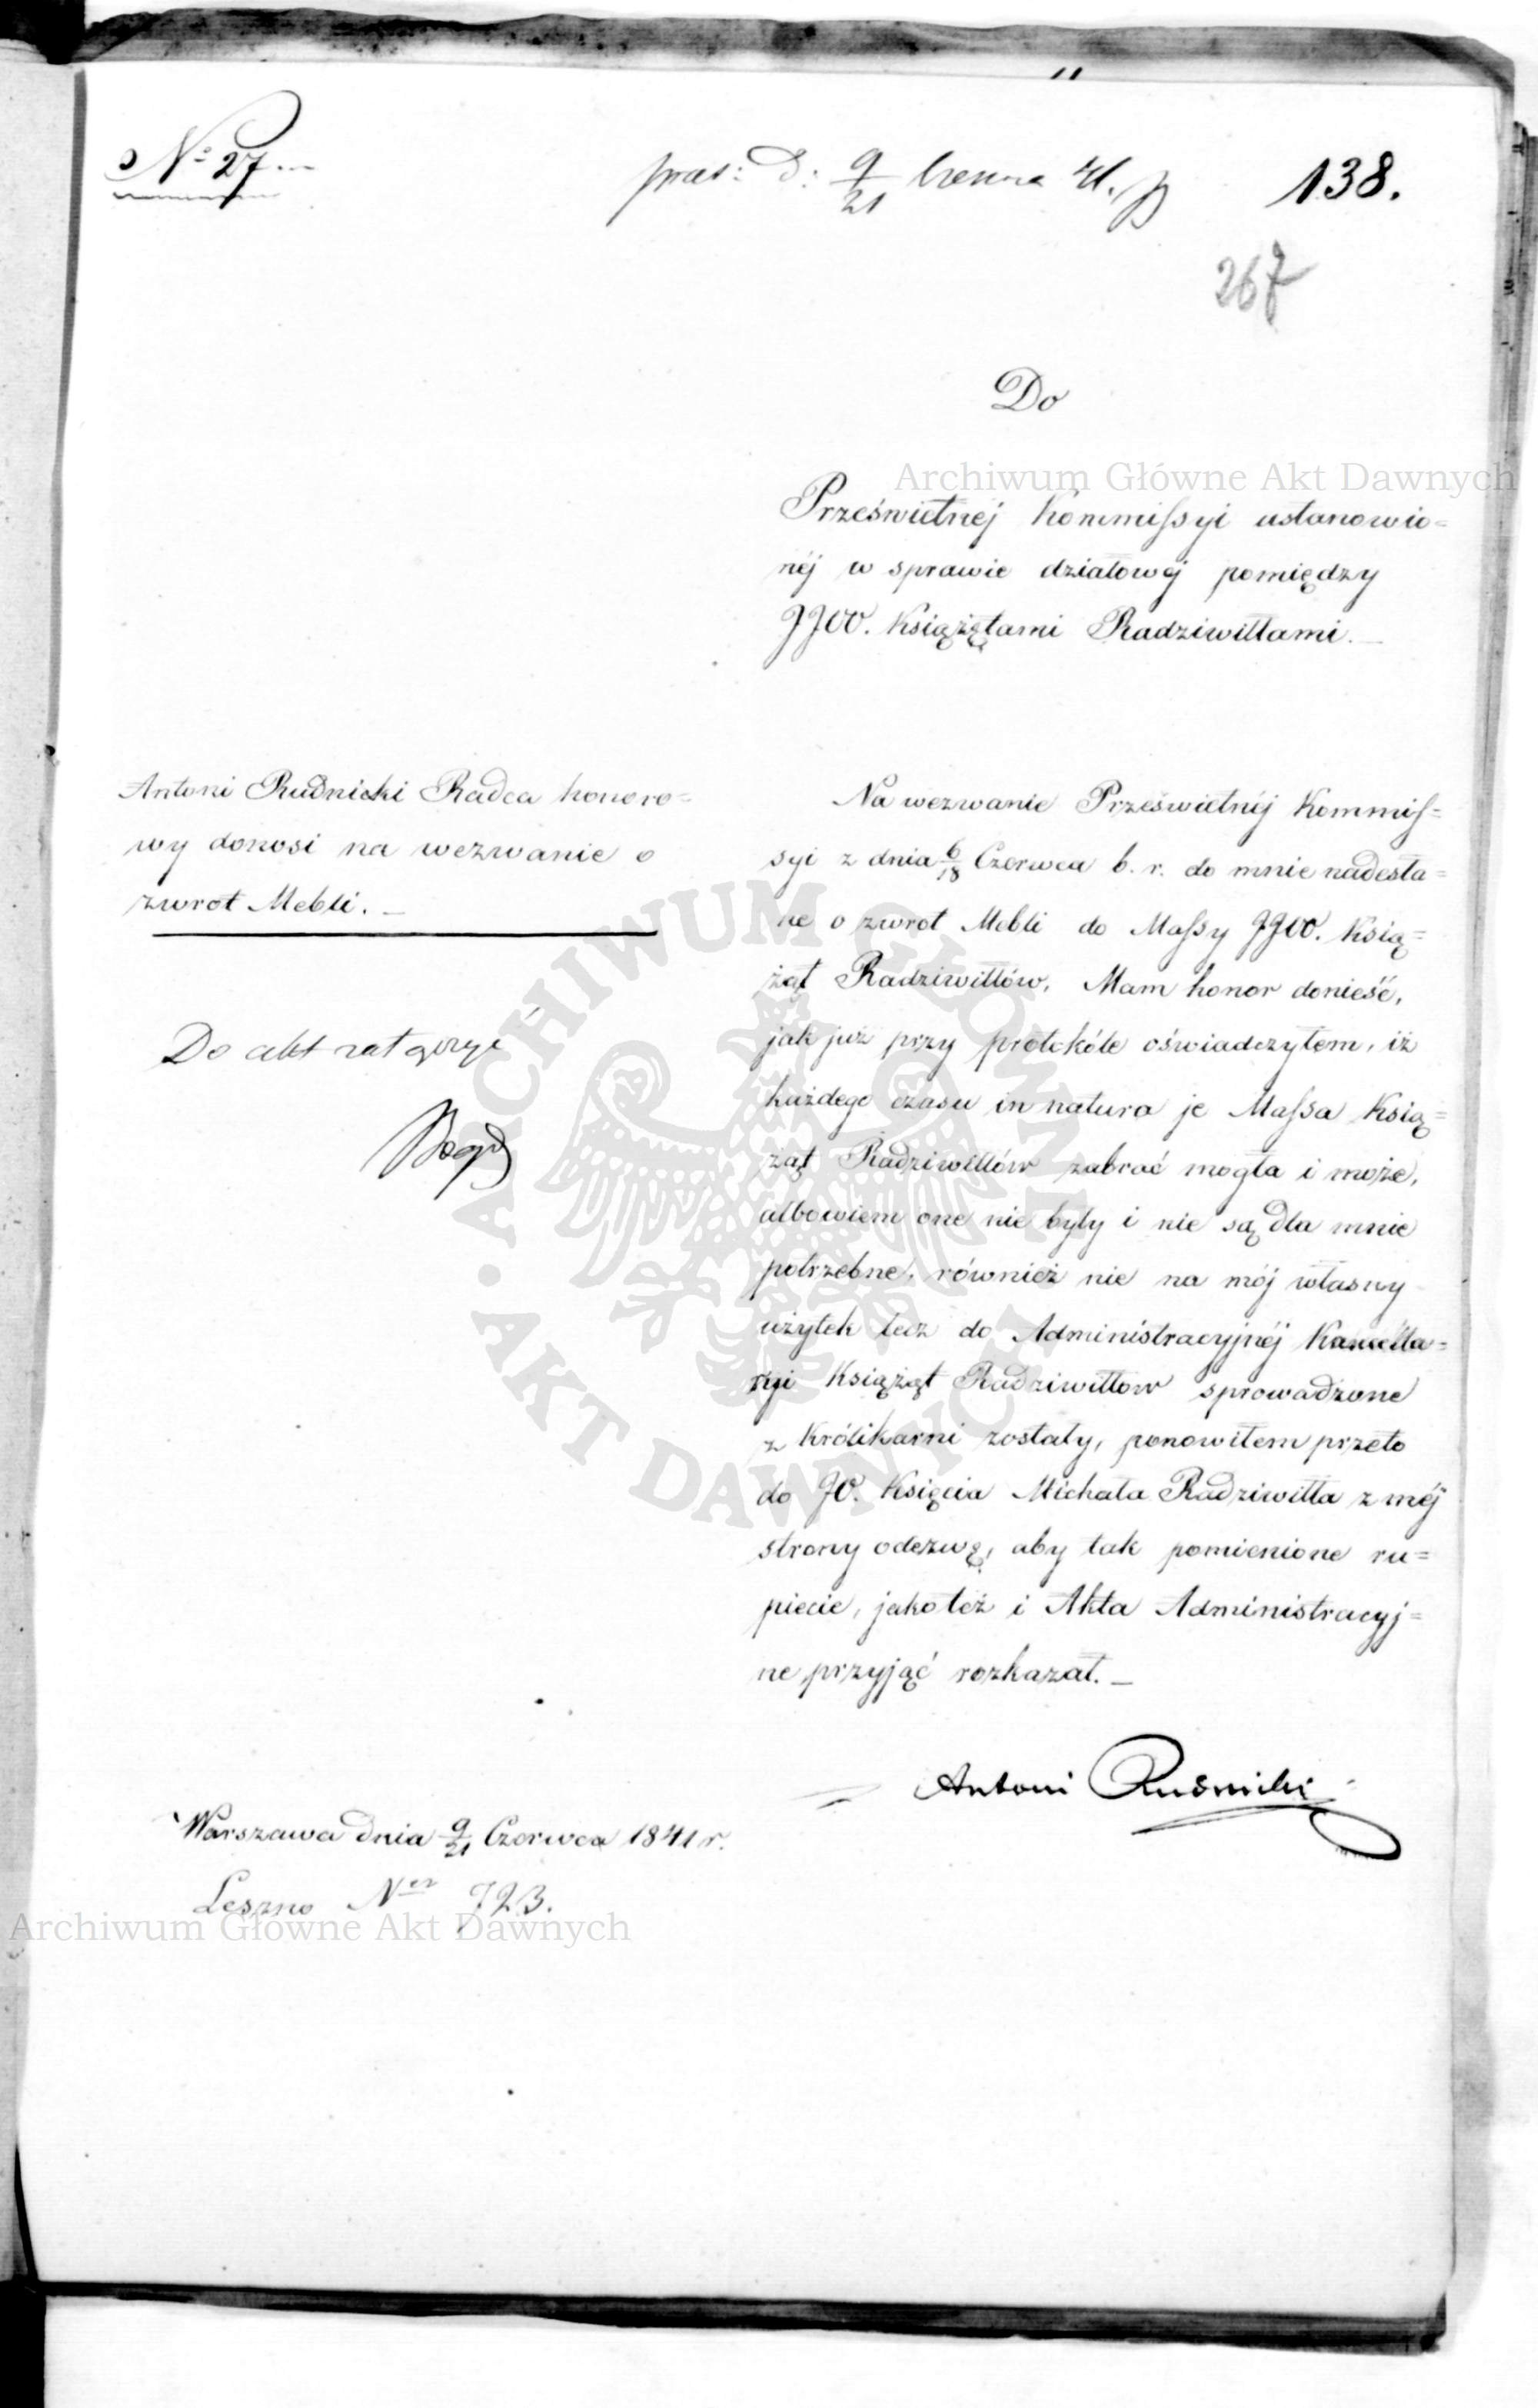 № 27.
præs: d: 9/21 Czerwca 41.
138.
267
Do
Prześwietnéj Kommissyi ustanowio=
néj w sprawie działowéj pomiędzy
JJOO. Książętami Radziwiłłami. —
Antoni Rudnicki Radca honoro=
wy donosi na wezwanie o
zwrot Mebli. —
Do akt
Na wezwanie Prześwietnéj Kommis=
syi z dnia 6/18 Czerwca b. r. do mnie nadesła=
ne o zwrot Mebli do Massy JJOO. Ksią=
żąt Radziwiłłów, Mam honor donieść,
jak już przy protokóle oświadczyłem, iż
każdego czasu in natura je Massa Ksią=
żąt Radziwiłłów zabrać mogła i może,
albowiem one nie były i nie są dla mnie
potrzebne, również nie na mój własny
użytek lecz do Administracyjnéj Kancella=
ryi Książąt Radziwiłłow sprowadzone
z Królikarni zostały, ponowiłem przeto
do JO. Księcia Michała Radziwiłła z méj
strony odezwę, aby tak pomienione ru=
piecie, jakoteż i Akta Administracyj=
ne przyjąć rozkazał. —
Antoni Rudnicki
Warszawa dnia 9/21 Czerwca 1841 r.
Leszno Ner 723.
Archiwum Główne Akt Dawnych
Archiwum Główne Akt Dawnych
ARCHIWUM GŁÓWNE • AKT DAWNYCH •